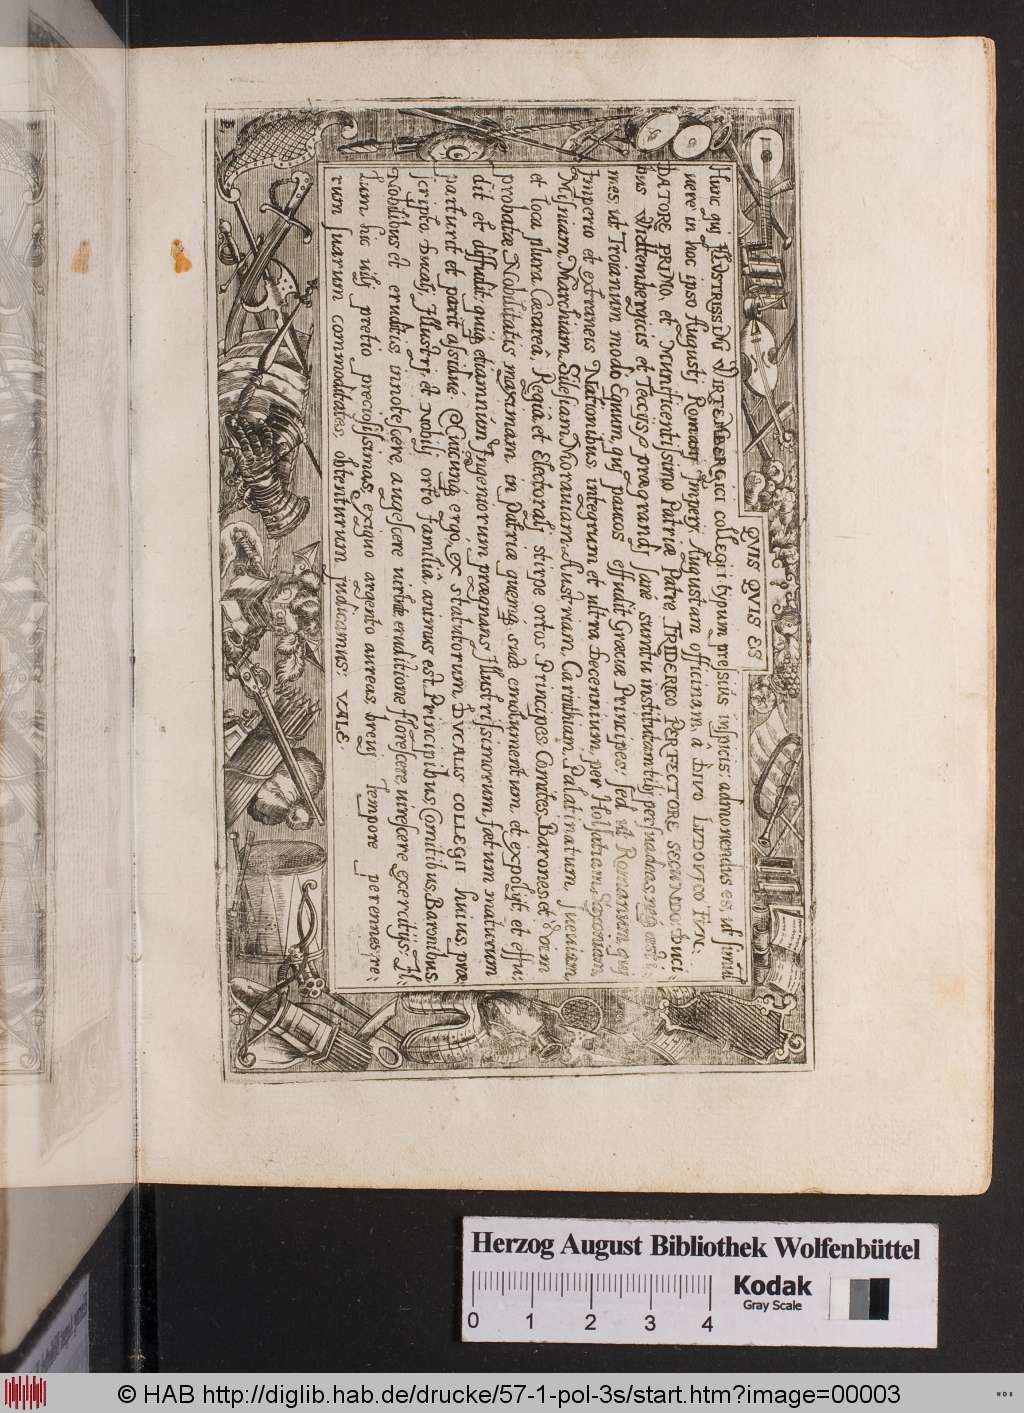 QVIS QVIS ES
Hunc qui ILLVSTRISSIMI VIRTEMBERGICI collegii typum presius inspicis: admonendus es, ut simul
uere in hoc ipso Augusti Romani Imperij Augustam officinam, à DIVO LVDOVICO FVN:
DATORE PRIMO, et Munificentissimo Patriæ Patre FRIDERICO PERFECTORE SECVNDO: Duci:
bus Wirttembergicis et Teccijs prægrandj sanè sumtu institutam tibj
mes, ut Troianum modò Equum, qui paucos effudit Græciæ Principes: sed ut Romanum, qui
Imperio et extraneis Nationibus, integrum et ultra Decennium, per Holsatiam, Saxoniam,
Misniam, Marchiam, Silesiam, Morauiam, Austriam, Carinthiam, Palatinatum, Sueuiam,
et loca plura Cæsareâ, Regiâ, et Electoralj stirpe ortos Principes, Comites, Barones, et
probatæ Nobilitatis maximam in Patriæ quemq, suæ emolumentum, et expolijt, et effu:
dit et diffudit: quiq, etiamnùm Ingeniorum prægnans Illustrissimorum, fœtum maturum
parturit et parit assiduè. Quicunq, ergo, ex statutorum DVCALIS COLLEGII huius præ
scripto, Ducalj, Illustrj, et Nobilj orto familiâ, animus est, Principibus, Comitibus, Baronibus,
Nobilibus et eruditis innotescere, augescere uirtute eruditione florescere, uirescere exercitijs: Il:
lum, hic uilj pretio preciosissimas, exiguo argento aureas, breuj tempore perennes, re:
rum suarum commoditates, obtenturum judicamus: VALE.
Herzog August Bibliothek Wolfenbüttel
Kodak
Gray Scale
0 1 2 3 4
© HAB http://diglib.hab.de/drucke/57-1-pol-3s/start.htm?image=00003